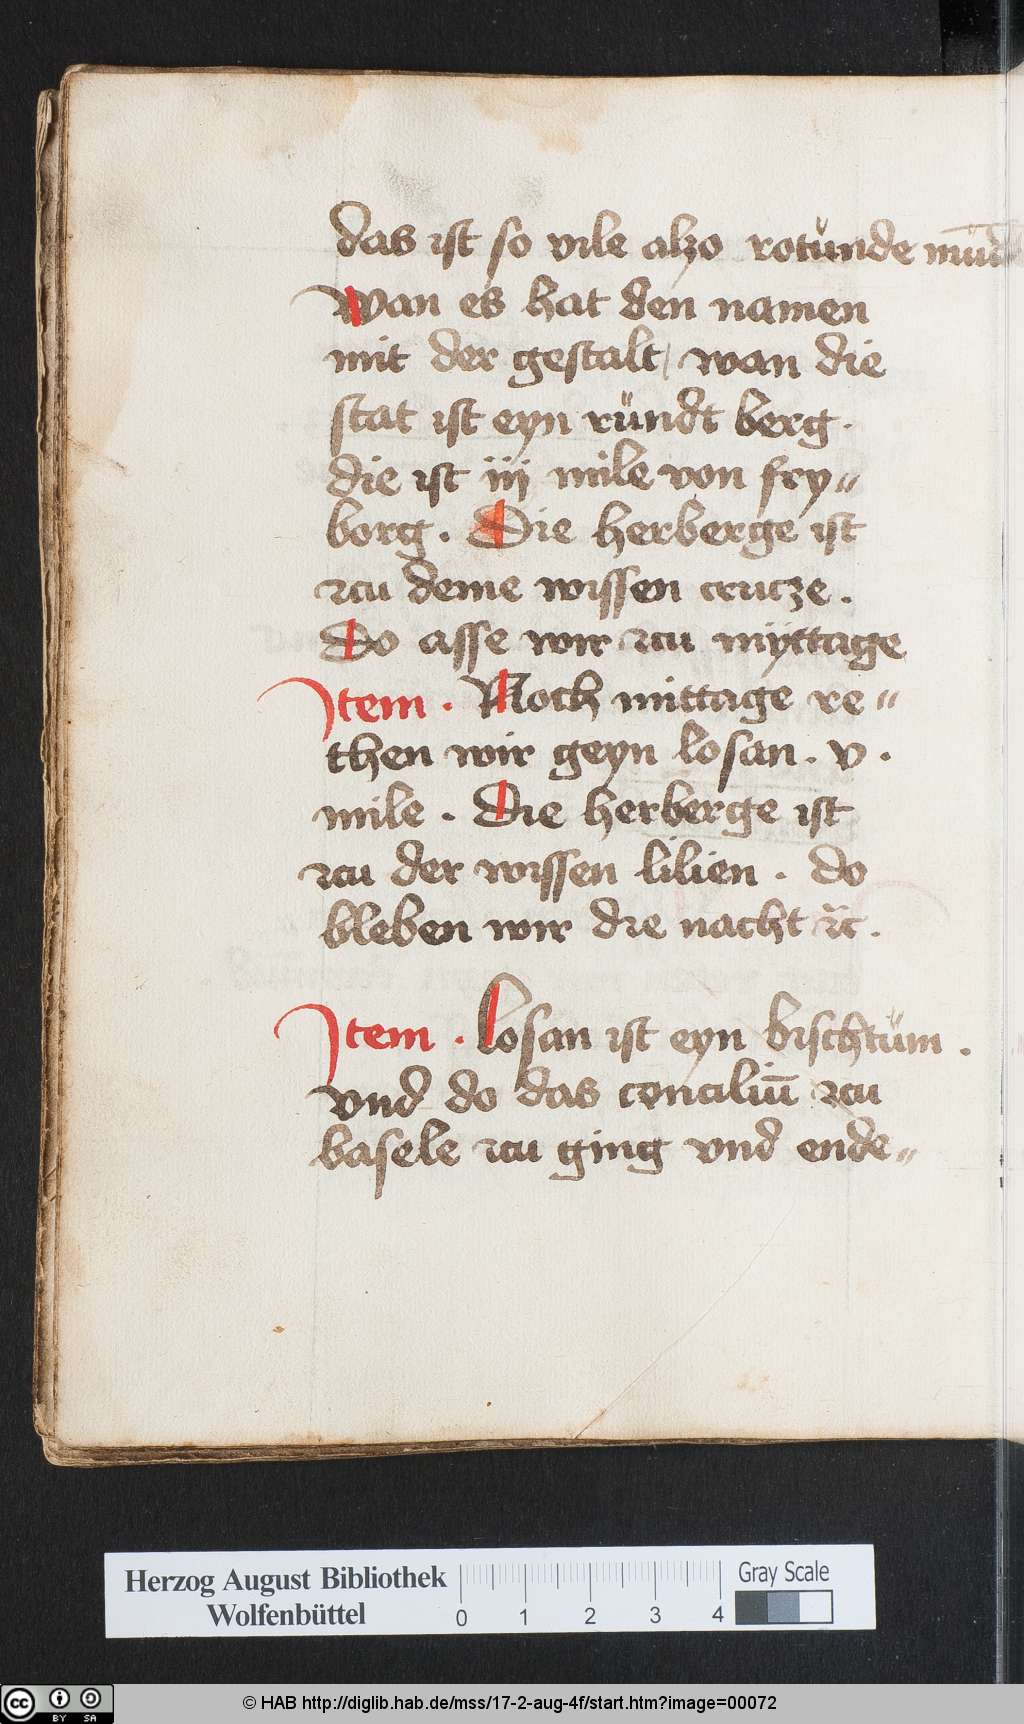 das ist so vile alzo rotunde
Wan es hat den namen
mit der gestalt / wan die
stat ist eyn ründt berg .
die ist iij mile von fry=
borg . Die herberge ist
zcu deme wissen crucze .
Do asse wir zcu myttage
Item . Noch mittage re=
then wir geyn losan . v .
mile . Die herberge ist
zcu der wissen lilien . do
bleben wir die nacht ꝛc̄ .
Item . losan ist eyn bischtüm .
vnd do das conciliū zcu
basele zcu ging vnd ende=
Herzog August Bibliothek
Wolfenbüttel
0 1 2 3 4
Gray Scale
cc BY SA
© HAB http://diglib.hab.de/mss/17-2-aug-4f/start.htm?image=00072